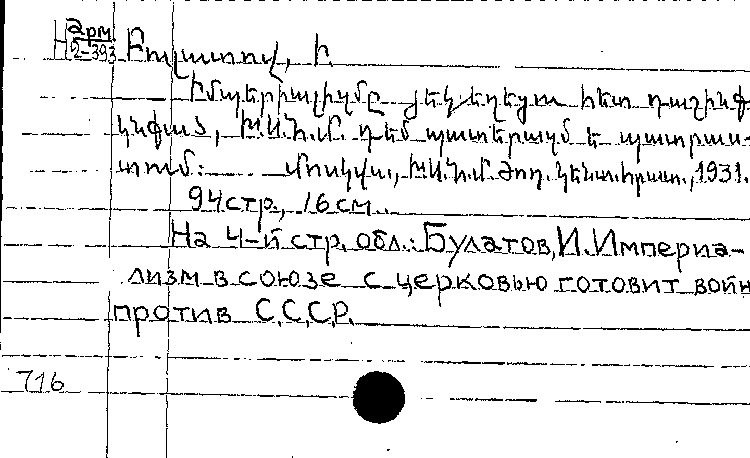 Н арм
2-393 Բուլատով, Ի
Իմպերիալիզմը յեկեղեցու հետ դաշինք
կնքած, Խ.Ս.Հ.Մ. դեմ պատերազմ է պատրաս-
տում: Մոսկվա, Խ.Ս.Հ.Մ. Ժող. կենտ. հրատ., 1931.
94 стр., 16 см.
На 4-й стр. обл.: Булатов, И. Империа-
лизм в союзе с церковью готовит войн
против С.С.С.Р.
716